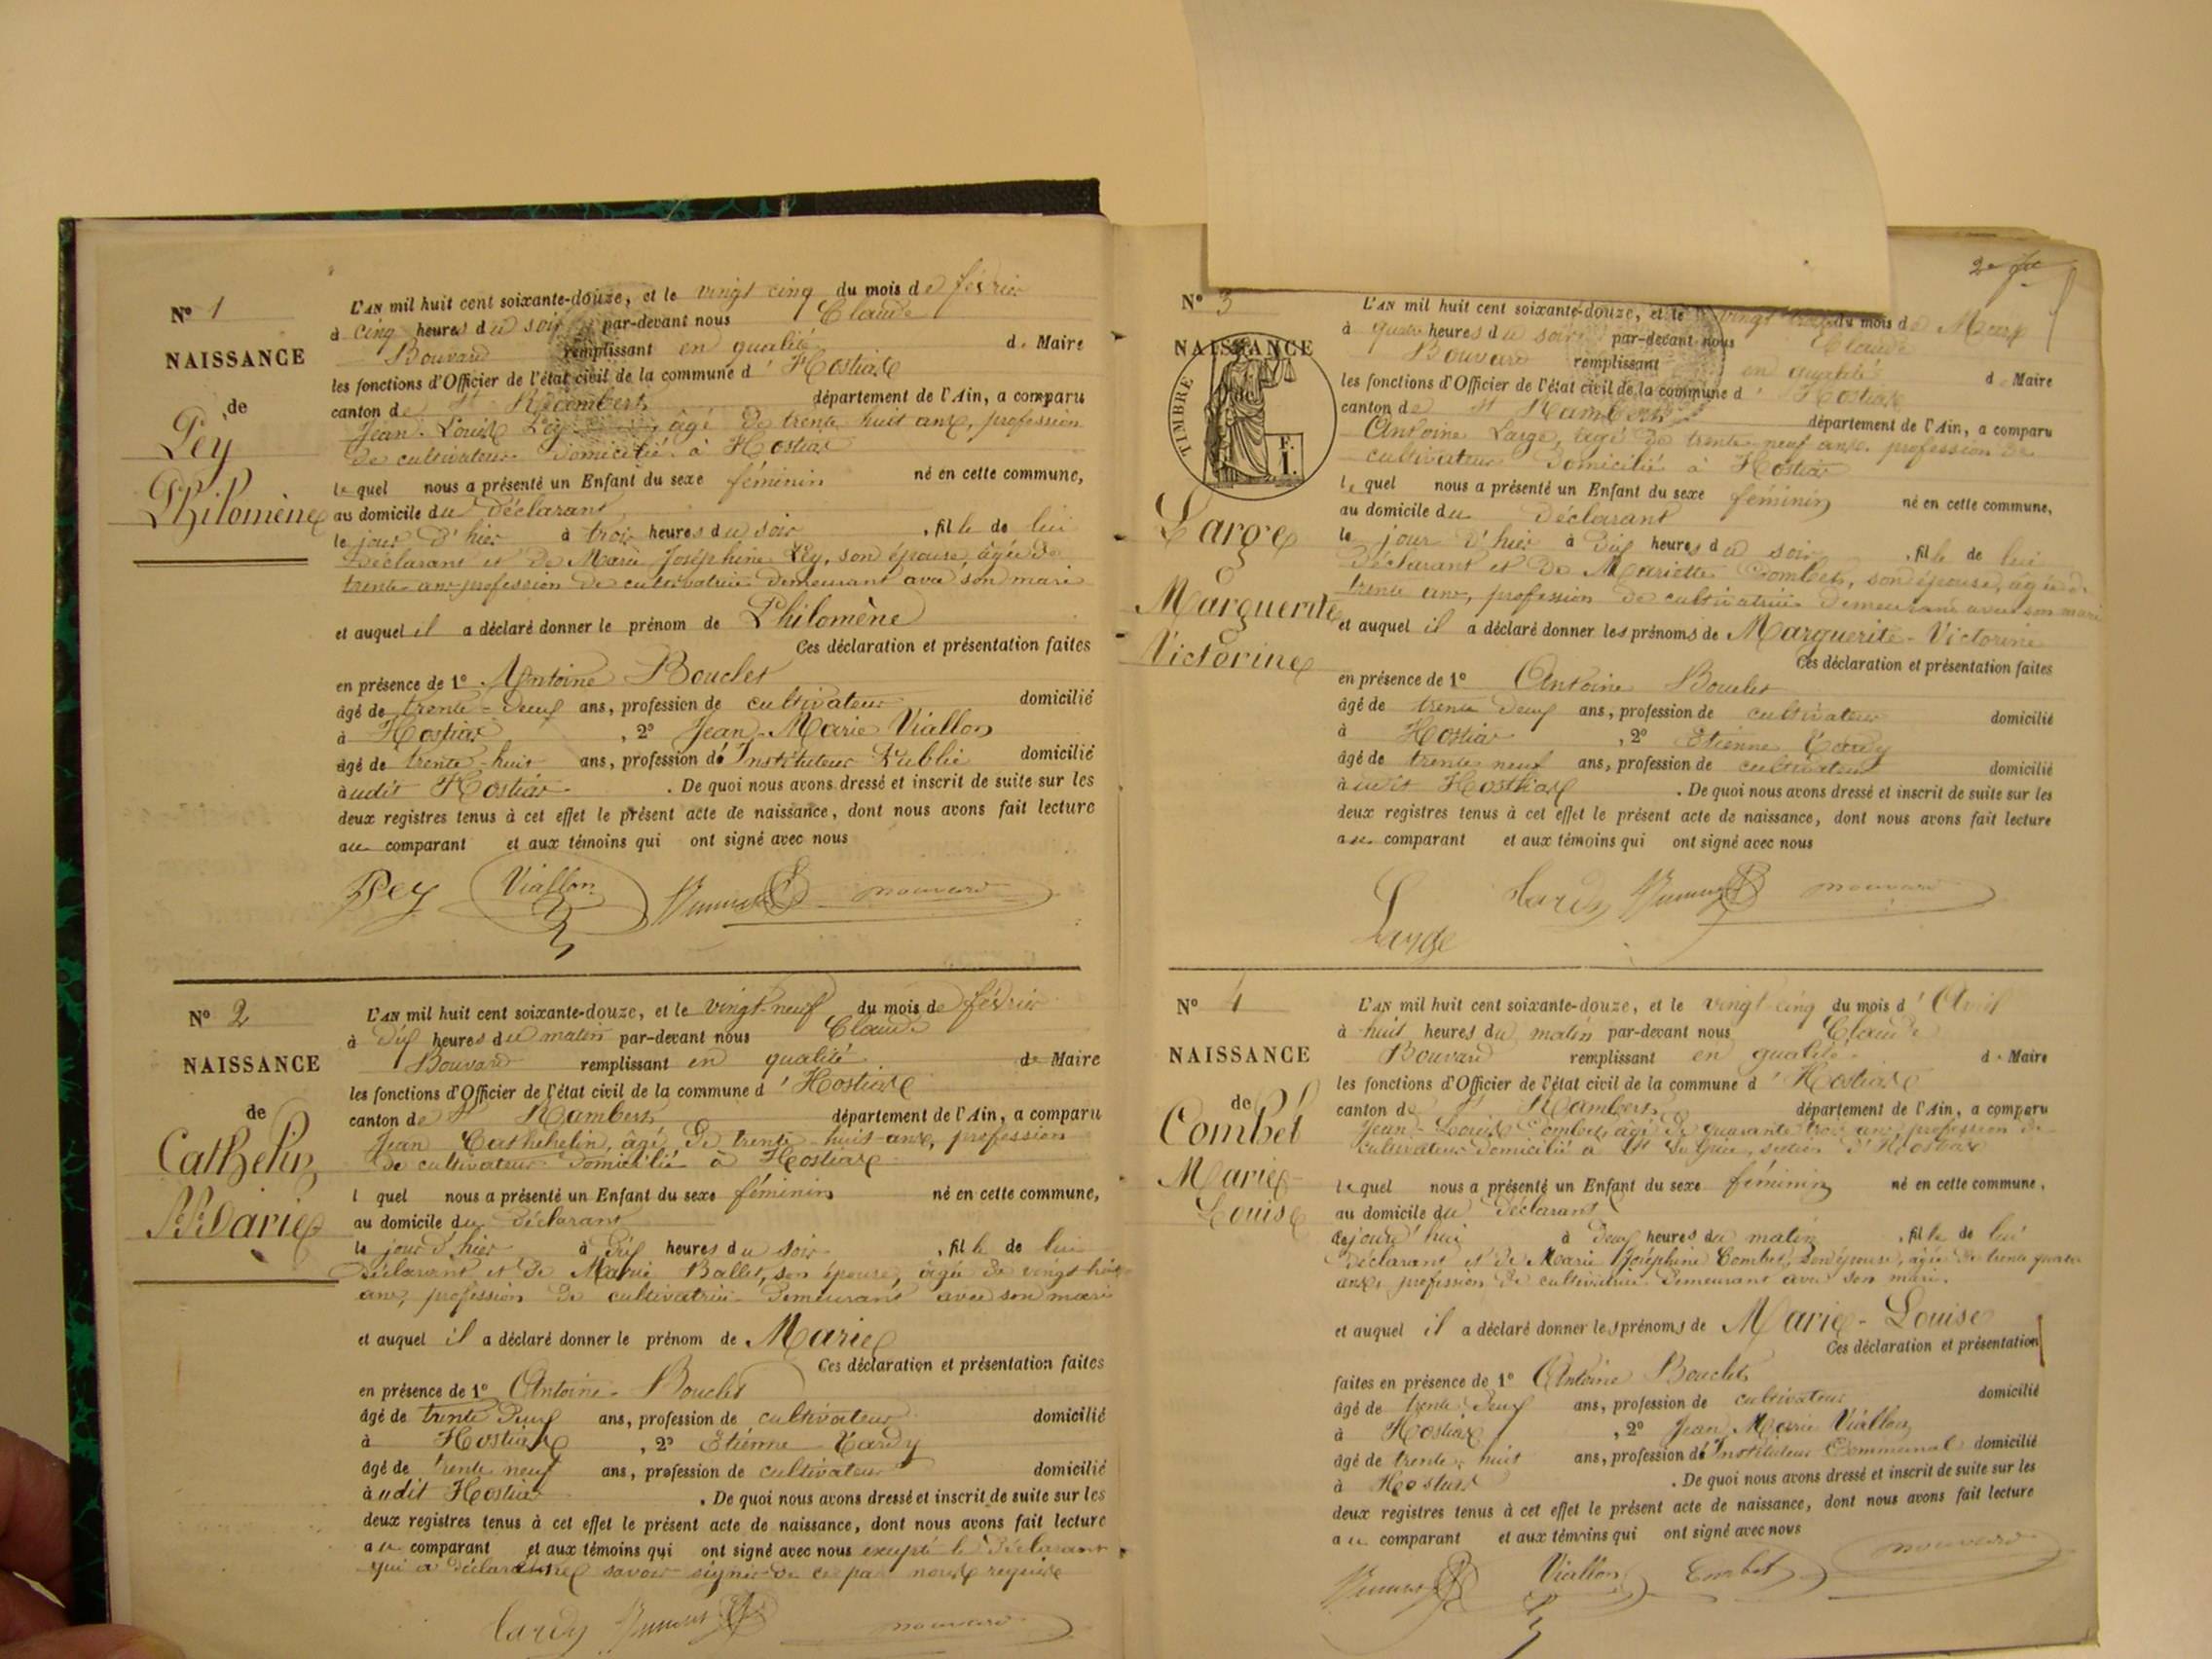 N° 1
NAISSANCE
de
Pey
Philomène
L'AN mil huit cent soixante-douze, et le vingt cinq du mois de février
à cinq heures du soir par-devant nous Claude
Bouvard remplissant en qualité de Maire
les fonctions d'Officier de l'état civil de la commune d'Hostiax
canton de St Rambert département de l'Ain, a comparu
Jean Louis Pey âgé de trente huit ans, profession
de cultivateur domicilié à Hostiax
lequel nous a présenté un Enfant du sexe féminin né en cette commune,
au domicile du déclarant
le jour d'hier à trois heures du soir, fille de lui
déclarant et de Marie Joséphine Pey, son épouse, âgée de
trente ans profession de cultivatrice demeurant avec son mari
et auquel il a déclaré donner le prénom de Philomène
Ces déclaration et présentation faites
en présence de 1° Antoine Bouclet
âgé de trente-deux ans, profession de cultivateur domicilié
à Hostiax, 2° Jean-Marie Viallon
âgé de trente-huit ans, profession d'Instituteur Public domicilié
audit Hostiax. De quoi nous avons dressé et inscrit de suite sur les
deux registres tenus à cet effet le présent acte de naissance, dont nous avons fait lecture
au comparant et aux témoins qui ont signé avec nous
Pey Viallon
N° 2
NAISSANCE
de
Cathelin
Marie
L'AN mil huit cent soixante-douze, et le vingt-neuf du mois de février
à dix heures du matin par-devant nous Claude
Bouvard remplissant en qualité de Maire
les fonctions d'Officier de l'état civil de la commune d'Hostiax
canton de St Rambert département de l'Ain, a comparu
Jean Cathehelin, âgé de trente-huit ans, profession
de cultivateur domicilié à Hostiax
l quel nous a présenté un Enfant du sexe féminin né en cette commune,
au domicile du déclarant
le jour d'hier à dix heures du soir, fille de lui
déclarant et de Marie Ballet, son épouse, âgée de vingt huit
ans, profession de cultivatrice demeurant avec son mari
et auquel il a déclaré donner le prénom de Marie
Ces déclaration et présentation faites
en présence de 1° Antoine Bouclet
âgé de trente deux ans, profession de cultivateur domicilié
à Hostiax, 2° Etienne Tardy
âgé de trente neuf ans, profession de cultivateur domicilié
audit Hostiax. De quoi nous avons dressé et inscrit de suite sur les
deux registres tenus à cet effet le présent acte de naissance, dont nous avons fait lecture
au comparant et aux témoins qui ont signé avec nous excepté le déclarant
qui a déclaré ne savoir signer de ce par nous requis
Tardy
2e fet
N° 3
NAISSANCE
TIMBRE
F.
1.
Large
Marguerite
Victorine
L'AN mil huit cent soixante-douze, et le vingt trois du mois de Mars
à quatre heures du soir par-devant nous Claude
Bouvard remplissant en qualité de Maire
les fonctions d'Officier de l'état civil de la commune d'Hostiax
canton de St Rambert département de l'Ain, a comparu
Antoine Large, âgé de trente-neuf ans, profession de
cultivateur domicilié à Hostiax
lequel nous a présenté un Enfant du sexe féminin né en cette commune,
au domicile du déclarant
le jour d'hier à dix heures du soir, fille de lui
déclarant et de Mariette Combet, son épouse, âgée de
trente ans, profession de cultivatrice demeurant avec son mari
et auquel il a déclaré donner les prénoms de Marguerite-Victorine
Ces déclaration et présentation faites
en présence de 1° Antoine Bouclet
âgé de trente deux ans, profession de cultivateur domicilié
à Hostiax, 2° Etienne Tardy
âgé de trente neuf ans, profession de cultivateur domicilié
audit Hosthiax. De quoi nous avons dressé et inscrit de suite sur les
deux registres tenus à cet effet le présent acte de naissance, dont nous avons fait lecture
au comparant et aux témoins qui ont signé avec nous
Large Tardy
N° 4
NAISSANCE
de
Combet
Marie
Louise
L'AN mil huit cent soixante-douze, et le vingt cinq du mois d'Avril
à huit heures du matin par-devant nous Claude
Bouvard remplissant en qualité de Maire
les fonctions d'Officier de l'état civil de la commune d'Hostiax
canton de St Rambert département de l'Ain, a comparu
Jean-Louis Combet, âgé de quarante trois ans profession de
cultivateur domicilié à St Sulpice, section d'Hostiax
lequel nous a présenté un Enfant du sexe féminin né en cette commune,
au domicile du déclarant
cejourd'hui à deux heures du matin, fille de lui
déclarant et de Marie Joséphine Combet, son épouse, âgée de trente quatre
ans, profession de cultivatrice demeurant avec son mari.
et auquel il a déclaré donner les prénoms de Marie-Louise
Ces déclaration et présentation
faites en présence de 1° Antoine Bouclet
âgé de trente deux ans, profession de cultivateur domicilié
à Hostiax, 2° Jean Marie Viallon
âgé de trente-huit ans, profession d'Instituteur Communal domicilié
à Hostiax. De quoi nous avons dressé et inscrit de suite sur les
deux registres tenus à cet effet le présent acte de naissance, dont nous avons fait lecture
au comparant et aux témoins qui ont signé avec nous
Viallon Combet